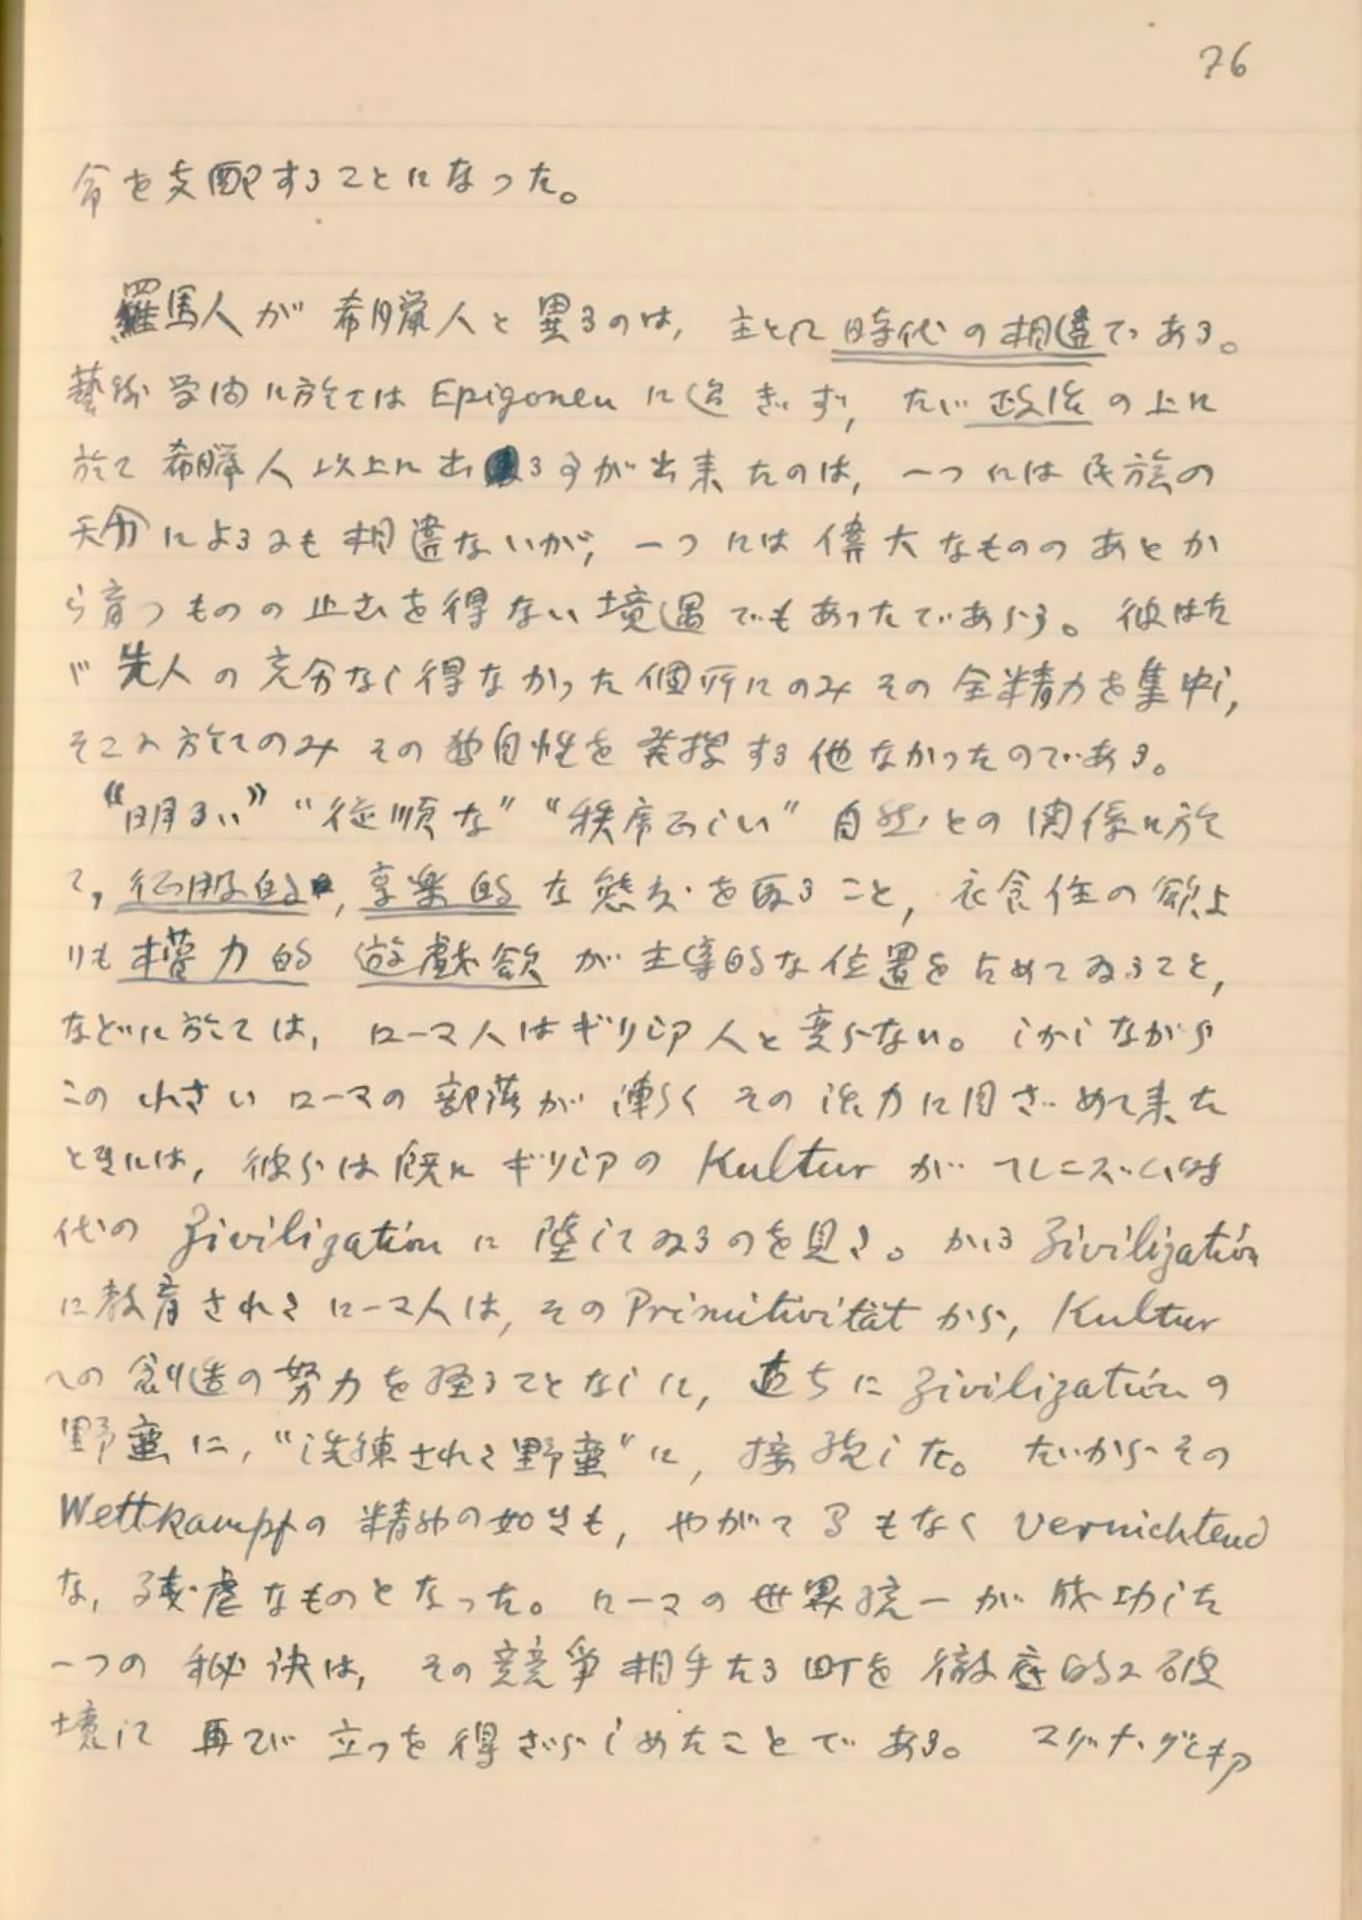 76
命を支配することになった。
羅馬人が希臘人と異るのは, 主とに時代の相違である。
藝術学問に於ては Epigonen に過ぎず, たゞ政治の上に
於て希臘人以上に出る事が出来たのは, 一つには民族の
天分によるにも相違ないが, 一つには偉大なもののあとか
ら育つものの止むを得ない境遇でもあったであらう。彼はた
ゞ先人の充分なし得なかった個所にのみその全精力を集中し,
そこに於てのみその独自性を発揮する他なかったのである。
“明るい” “従順な” “秩序正しい” 自然との関係に於
て, 征服的, 享楽的な態度を取ること, 衣食住の欲よ
りも権力的遊戯欲が主導的な位置を占めてゐること,
などに於ては, ローマ人はギリシア人と変らない。しかしながら
この小さいローマの部落が漸くその活力に目ざめて来た
ときには, 彼らは既にギリシアの Kultur がヘレニズム時
代の Zivilization に堕してゐるのを見た。かゝる Zivilization
に教育されたローマ人は, その Primitivität から, Kultur
への創造の努力を経ることなしに, 直ちに Zivilization の
野蛮に, “洗練された野蛮” に, 接続した。だからその
Wettkampf の精神の如きも, やがて もなく vernichtend
な, 残虐なものとなった。ローマの世界統一が成功した
一つの秘訣は, その競争相手たる町を徹底的に破
壊して再び立つを得ざらしめたことである。マグナ・グレキア